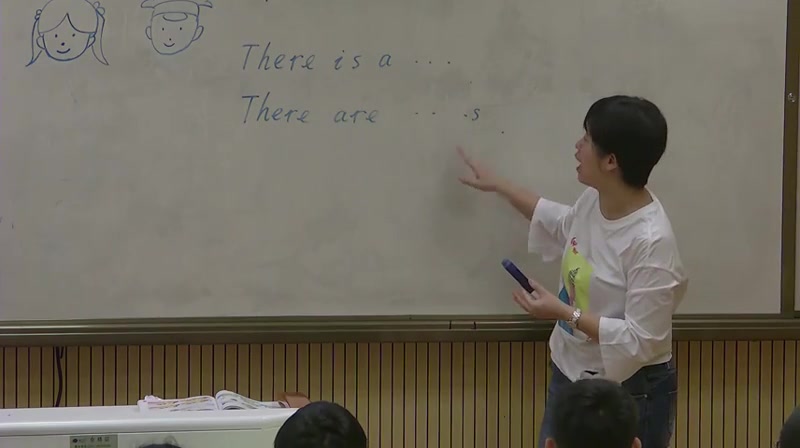 There is a ...
There are ... .s